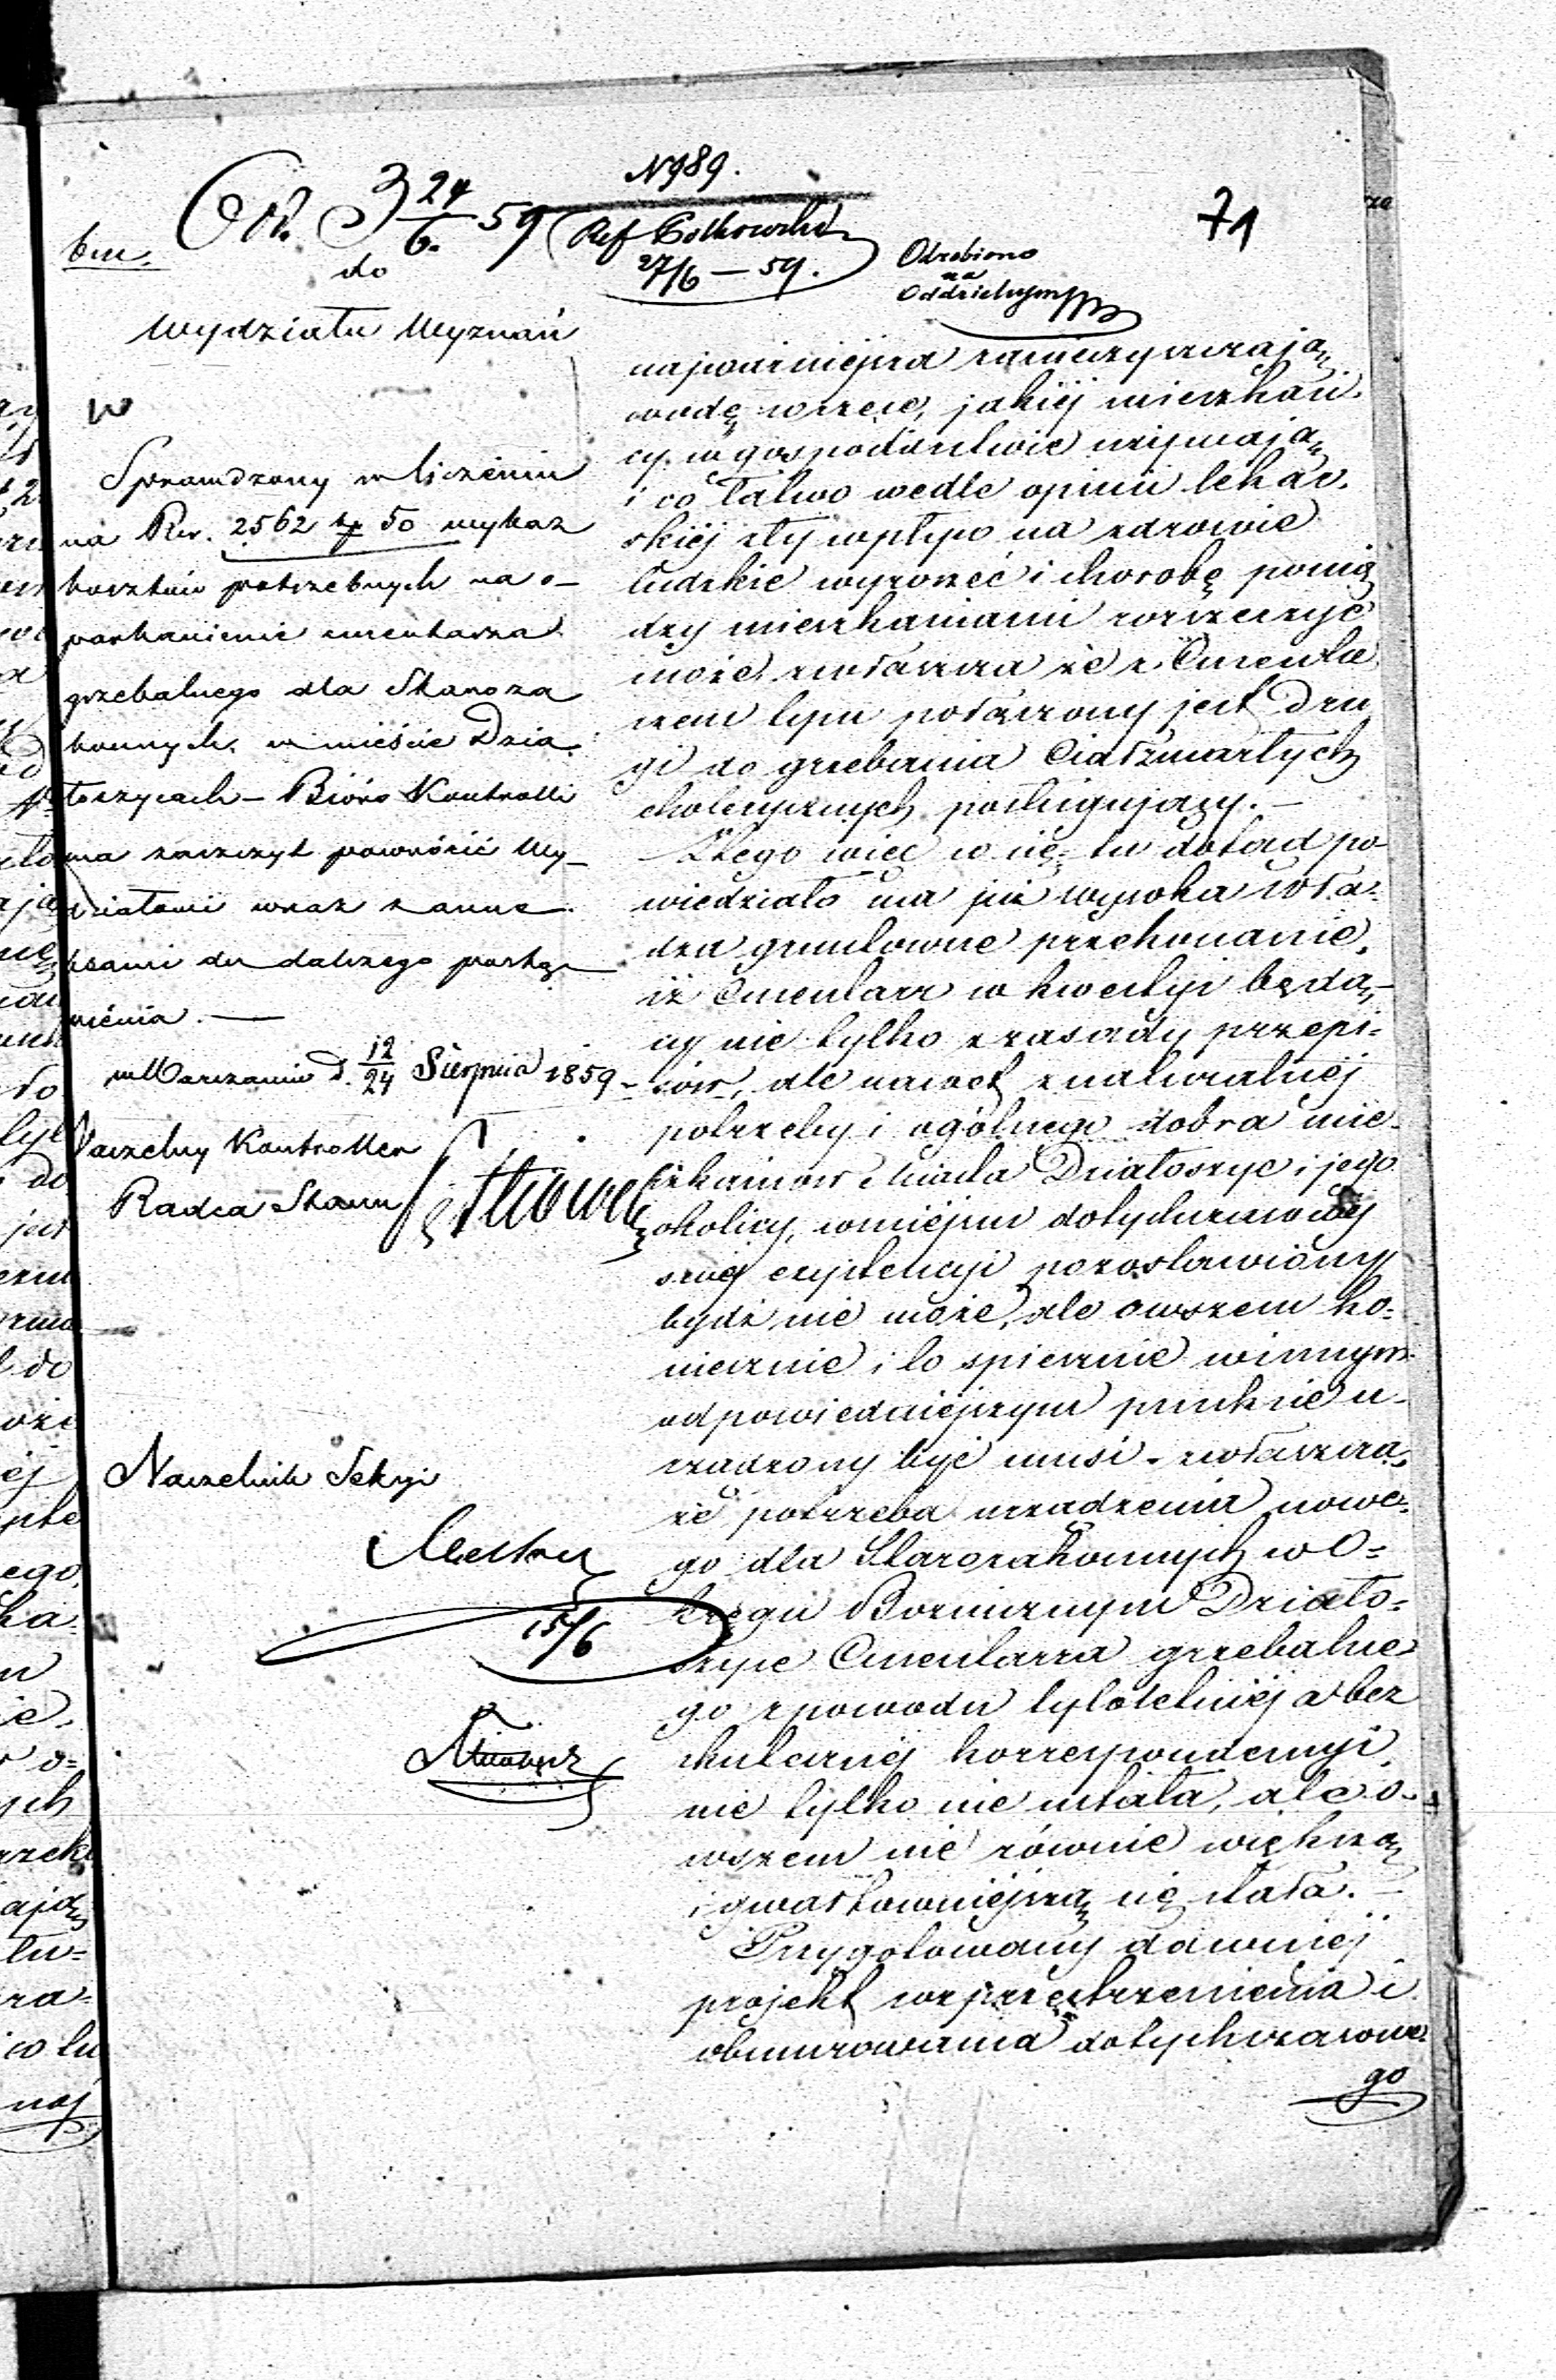 N 989.
Od. 3 24/6 59
Ref Gołkowski
27/6 – 59.
71
Odrobiono
na
Oddzielnym
do
Wydziału Wyznań
w
Sprawdzony w liczeniu
na Rsr. 2562 k. 50 wykaz
kosztów potrzebnych na o-
parkanienie cmentarza
grzebalnego dla Staroza
konnych w mieście Dzia-
łoszycach – Bióro Kontrolli
ma zaszczyt powrócić Wy-
działowi wraz z anne-
ksami do dalszego postą-
pienia. —
w Warszawie d. 12/24 Sierpnia 1859 -
Naczelny Kontroller
Radca Stanu
Naczelnik Sekcyi
15/6
najważniejsza zanieczyszczają
wodę w rzece, jakiéj mieszkań-
cy w gospodarstwie używają
i co łatwo wedle opinii lekar-
skiéj zły wpływ na zdrowie
ludzkie wyrzeć i chorobę pomię
dzy mieszkaniami rozszerzyć
może, zwłaszcza że z Cmenta
rzem tym połączony jest Dru
gi do grzebania Ciał zmarłych
cholerycznych posługujący. —
Z tego więc co się tu dotąd po-
wiedziało ma już wysoka Wła-
dza gruntowne przekonanie,
iż Cmentarz w kwestyi będą-
cy nie tylko z zasady przepi-
sów, ale nawet z naturalnéj
potrzeby i ogólnego dobra mie-
szkańców Miasta Działoszyc i jego
okolicy, w miejscu dotychczasowéj
swéj exystencyi pozostawiony
bydź nie może, ale owszem ko-
niecznie i to spiesznie w innym
odpowiedniejszym punkcie u-
rządzony być musi – zwłaszcza,
że potrzeba urządzenia nowe-
go dla Starozakonnych w O-
kręgu Bożniczym Działo-
szyce Cmentarza grzebalne
go z powodu tyloletniéj a bez
skutecznéj korrespondencyi,
nie tylko nie ustała, ale o-
wszem nie równie większą
i gwałtowniejszą się stała. —
Przygotowany dawniéj
projekt rozprzestrzenienia i
obmurowania dotychczasowe
go